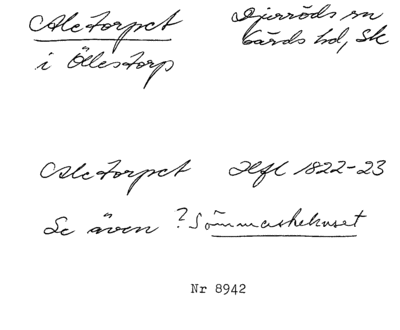 Aletorpet Djurröds sn
i Öllestorp Gärds hd, Sk
Aletorpet Hfl 1822-23
Se även ? Sömmaskehuset
Nr 8942